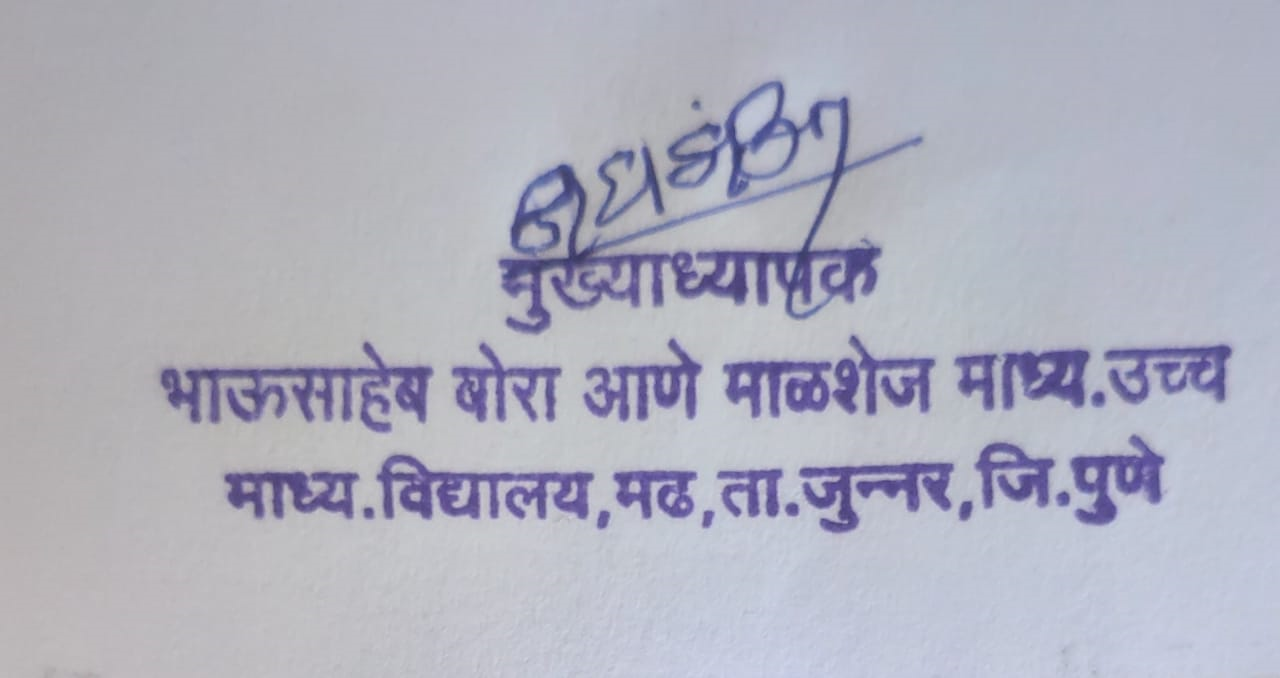 मुख्याध्यापक
भाऊसाहेब बोरा आणे माळशेज माध्य.उच्च
माध्य.विद्यालय,मढ,ता.जुन्नर,जि.पुणे